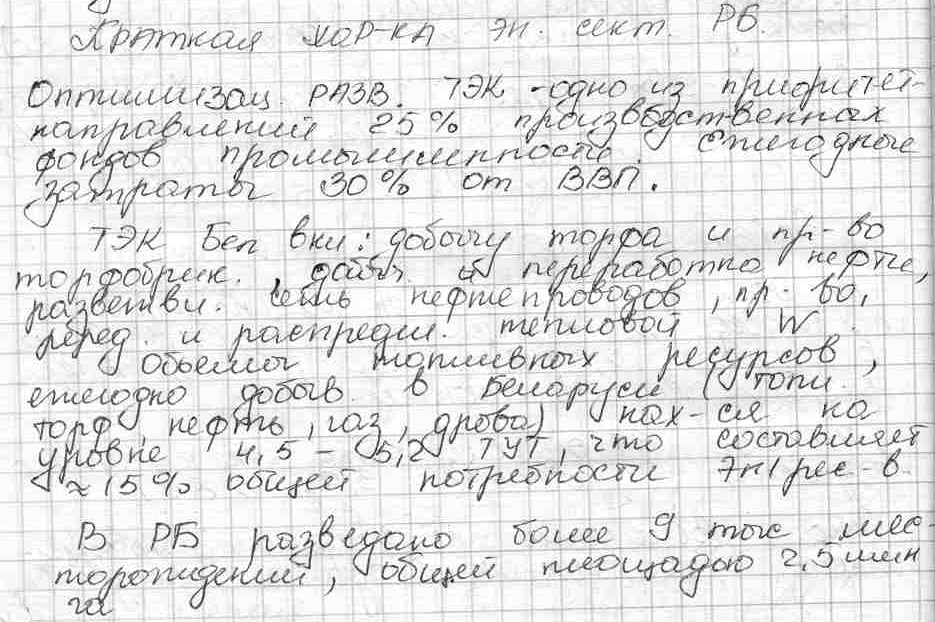 Краткая хар-ка эн. сект. РБ.
Оптимизац. разв. ТЭК - одно из приоритет-
направлений 25% производственных
фондов промышленности. Ежегодные
затраты 30% от ВВП.
ТЭК Бел вкл: добычу торфа и пр-во
торфобрик., добыч. и переработка нефти,
разветвл. сеть нефтепроводов, пр-во,
перед. и распредел. тепловой W.
Объемы топливных ресурсов,
ежегодно добыв. в Беларуси (топл.
торф, нефть, газ, дрова) нах-ся на
уровне 4,5 – 5,2 ТУТ, что составляет
≈ 15% общей потребности эн/рес-в.
В РБ разведано более 9 тыс мес-
торождений, общей площадью 2,5 млн
га